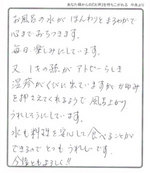 お風呂の水がほんわりとまろやかで
心までおちつきます。
毎日楽しみにしています。
又1才の孫がアトピーらしき
湿疹がでていますが かゆみ
を押さえてくれるようで 風呂上がり
うれしそうにしています。
水も料理を安心して食べることが
できるのでとてもうれしいです。
今後ともよろしく!!